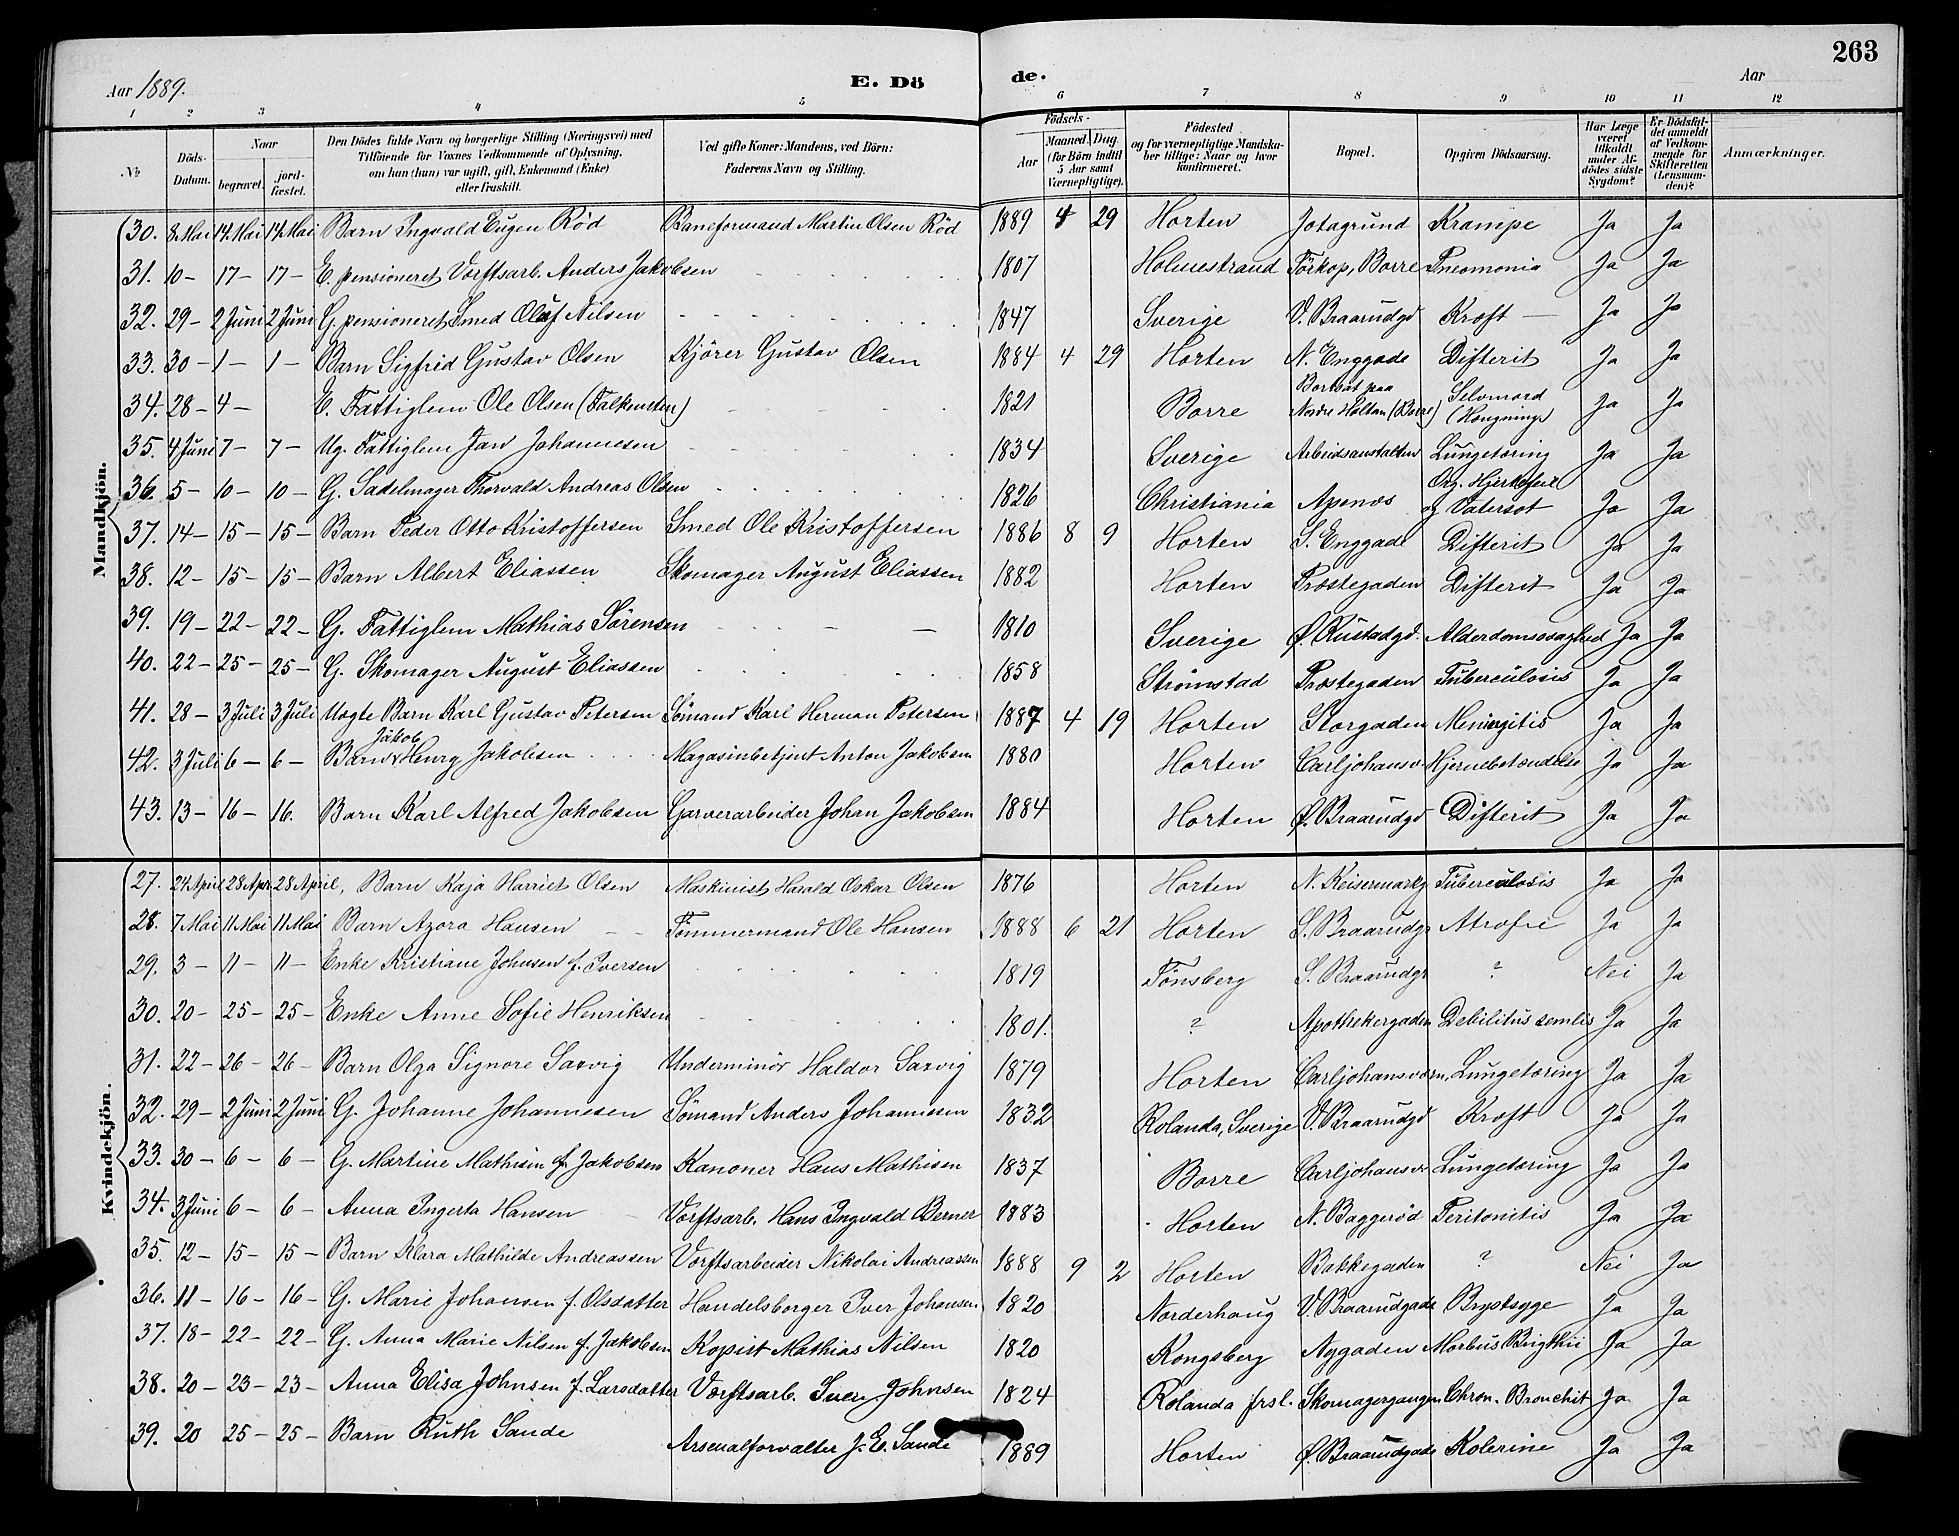 263
Aar 1889. E. Döde. Aar
1 2 3 4 5 6 7 8 9 10 11 12
№ Döds-Datum. Naar begravet. jordfæstet. Den Dödes fulde Navn og borgerlige Stilling (Næringsvei) med Tilföiende for Voxnes Vedkommende af Oplysning, om han (hun) var ugift, gift, Enkemand (Enke) eller fraskilt. Ved gifte Koner: Mandens, ved Börn: Faderens Navn og Stilling. Födsels- Aar Maaned. Dag. (for Börn indtil 5 Aar samt Værnepligtige). Födested og for værnepligtige Mandskaber tillige: Naar og hvor konfirmeret. Bopæl. Opgiven Dödsaarsag. Har Læge været tilkaldt under Afdödes sidste Sygdom? Er Dödsfaldet anmeldt af Vedkommende for Skifteretten (Lensmanden)? Anmærkninger.
Mandkjön.
30. 8 Mai 14 Mai 14 Mai Barn Ingvald Eugen Röd Baneformand Martin Olsen Röd 1889 4 29 Horten Jotagrund Krampe Ja Ja
31. 10 – 17 – 17 – E. pensioneret Værftsarb. Anders Jakobsen 1807 Holmestrand Förkop, Borre Pneomonia Ja Ja
32. 29 – 2 Juni 2 Juni G. pensioneret Smed Oluf Nilsen 1847 Sverige V. Braarudgd Kræft – Ja Ja
33. 30 – 1 – 1 – Barn Sigfrid Gustav Olsen Kjörer Gustav Olsen 1884 4 29 Horten N. Enggade Difterit Ja Ja
34. 28 – 4 – E. Fattiglem Ole Olsen (Falkensten) 1821 Borre Bortsat paa Nordre Holtan (Borre) Selvmord (Hængning) Ja Ja
35. 4 Juni 7 – 7 – Ug. Fattiglem Jan Johannesen 1834 Sverige Arbeidsanstalten Lungetæring Ja Ja
36. 5 – 10 – 10 – G. Sadelmager Thorvald Andreas Olsen 1826 Christiania Apenæs Org. Hjertefeil og Vatersot Ja Ja
37. 14 – 15 – 15 – Barn Peder Otto Kristoffersen Smed Ole Kristoffersen 1886 8 9 Horten S. Enggade Difterit Ja Ja
38. 12 – 15 – 15 – Barn Albert Eliassen Skomager August Eliassen 1882 Horten Præstegaden Difterit Ja Ja
39. 19 – 22 – 22 – G. Fattiglem Mathias Sörensen 1810 Sverige Ø. Rustadgd. Alderdomssvaghed Ja Ja
40. 22 – 25 – 25 – G. Skomager August Eliassen 1858 Strömstad Præstegaden Tuberculosis Ja Ja
41. 28 – 3 Juli 3 Juli Uægte Barn Karl Gustav Petersen Sömand Karl Herman Petersen 1887 4 19 Horten Storgaden Meningitis Ja Ja
42. 3 Juli 6 – 6 – Barn Jakob Henry Jakobsen Magasinbetjent Anton Jakobsen 1880 Horten Carljohansv. Hjernebetændelse Ja Ja
43. 13 – 16 – 16. Barn Karl Alfred Jakobsen Garverarbeider Johan Jakobsen 1884 Horten Ø. Braarudgd Difterit Ja Ja
Kvindekjön.
27. 24 April 28 Apr 28 April, Barn Kaja Harriet Olsen Maskinist Harald Oskar Olsen 1876 Horten N. Keisermarkg Tuberculosis Ja Ja
28. 7 Mai 11 Mai 11 Mai Barn Azora Hansen Tömmermand Ole Hansen 1888 6 21 Horten S. Braarudgr Atrofie Ja Ja
29. 3 – 11 – 11 – Enke Kristiane Johnsen f. Iversen 1819 Tönsberg S. Braarudgr ? Nei Ja
30. 20 – 25 – 25 – Enke Anne Sofie Henriksen 1801. ? Apothekergaden Debilitus semlis Ja Ja
31. 22 – 26 – 26 – Barn Olga Signore Saxvig Underminör Haldor Saxvig 1879 Horten Carljohansværn, Lungetæring Ja Ja
32. 29 – 2 Juni 2 Juni G. Johanne Johannesen Sömand Anders Johannesen 1832 Rolanda, Sverige V. Braarudgd Kræft Ja Ja
33. 30 – 6 – 6 – G. Martine Mathisen f. Jakobsen Kanoner Hans Mathisen 1837 Borre Carljohansv. Lungetæring Ja Ja
34. 3 Juni 6 – 6 – Anna Ingerta Hansen Værftsarb. Hans Ingvald Berner 1883 Horten N. Baggeröd Peritonitis Ja Ja
35. 12 – 15 – 15 – Barn Klara Mathilde Andreassen Værftsarbeider Nikolai Andreassen 1888 9 2 Horten Bakkegaden ? Nei Ja
36. 11 – 16 – 16 – G. Marie Johansen f. Olsdatter Handelsborger Iver Johansen 1820 Norderhaug V. Braarudgade Brystsyge Ja Ja
37. 18 – 22 – 22 – G. Anna Marie Nilsen f. Jakobsen Kopist Mathias Nilsen 1820 Kongsberg Nygaden Morbus Brigthii Ja Ja
38. 20 – 23 – 23 – Anna Elisa Johnsen f. Larsdatter Værftsarb. Iver Johnsen 1824 Rolanda prsl. Skomagergangen Chron. Bronchit Ja Ja
39. 20 25 – 25 – Barn Ruth Sande Arsenalforvalter J. E. Sande 1889 Horten Ø. Braarudgade Kolerine Ja Ja